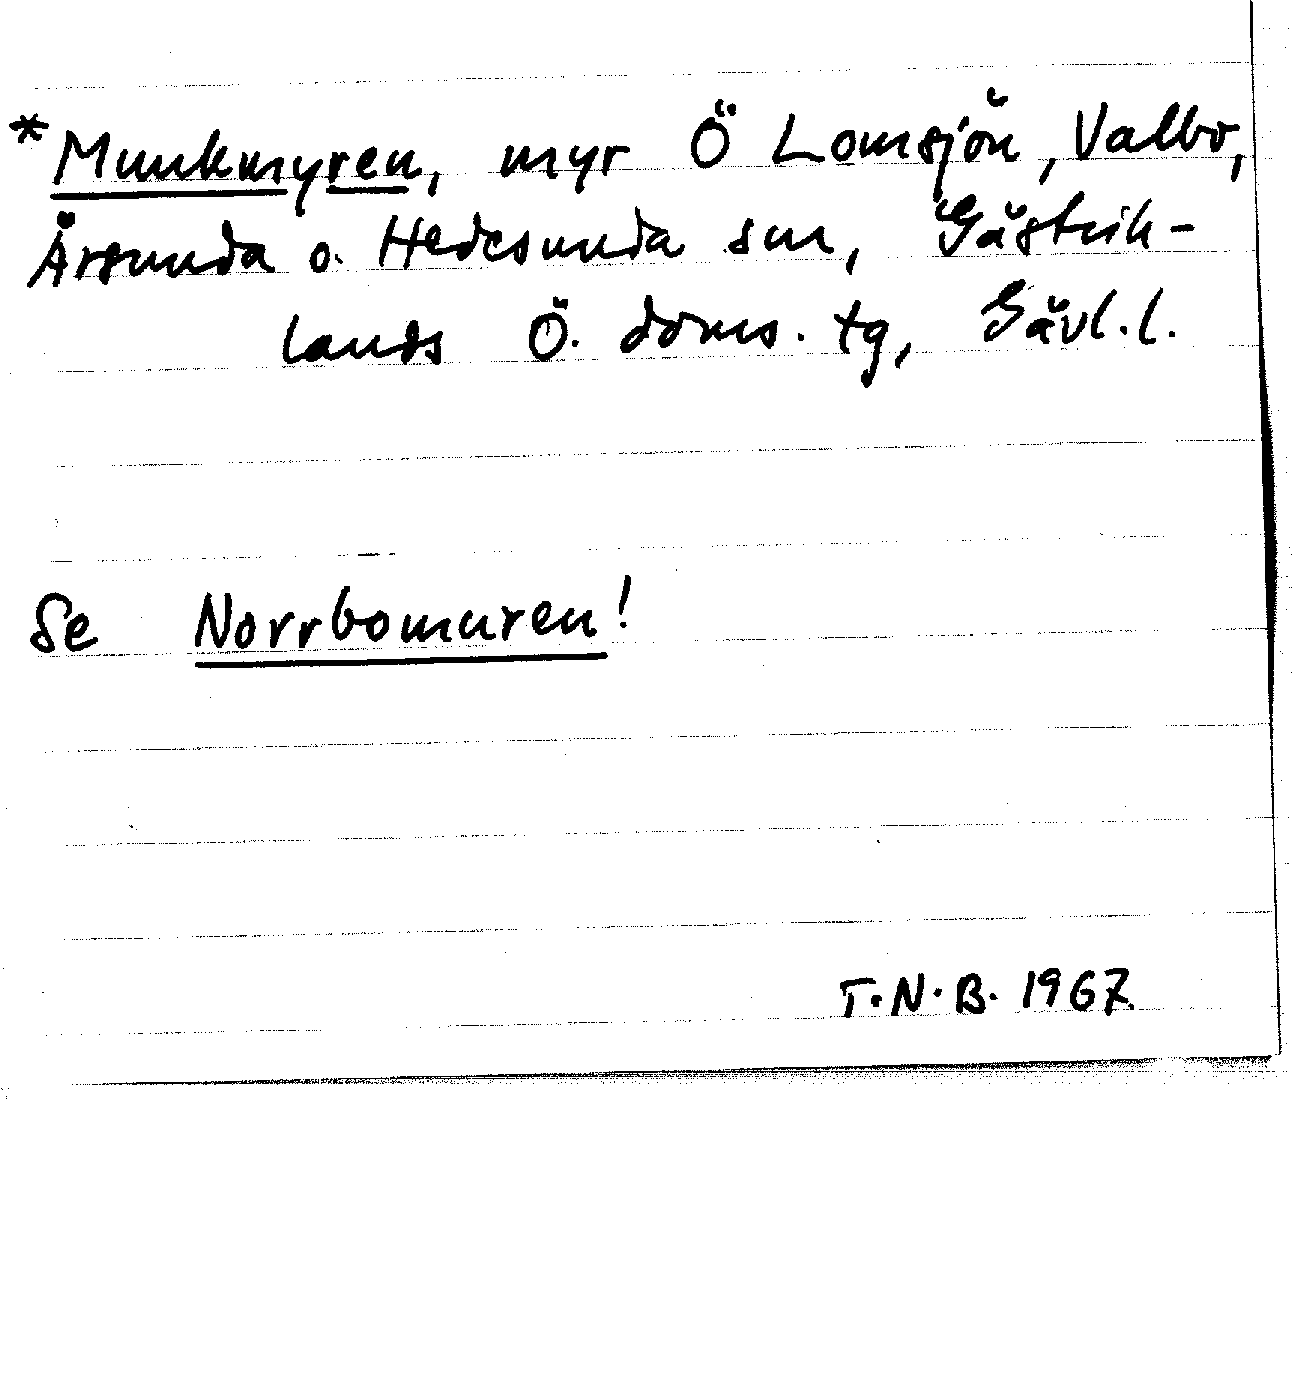 *Munkmyren, myr Ö Lomsjön, Valbo,
Årsunda o. Hedesunda sm, Gästrik-
lands Ö. doms. tg, Gävl.l.
Se Norrbomuren!
T.N.B. 1967.